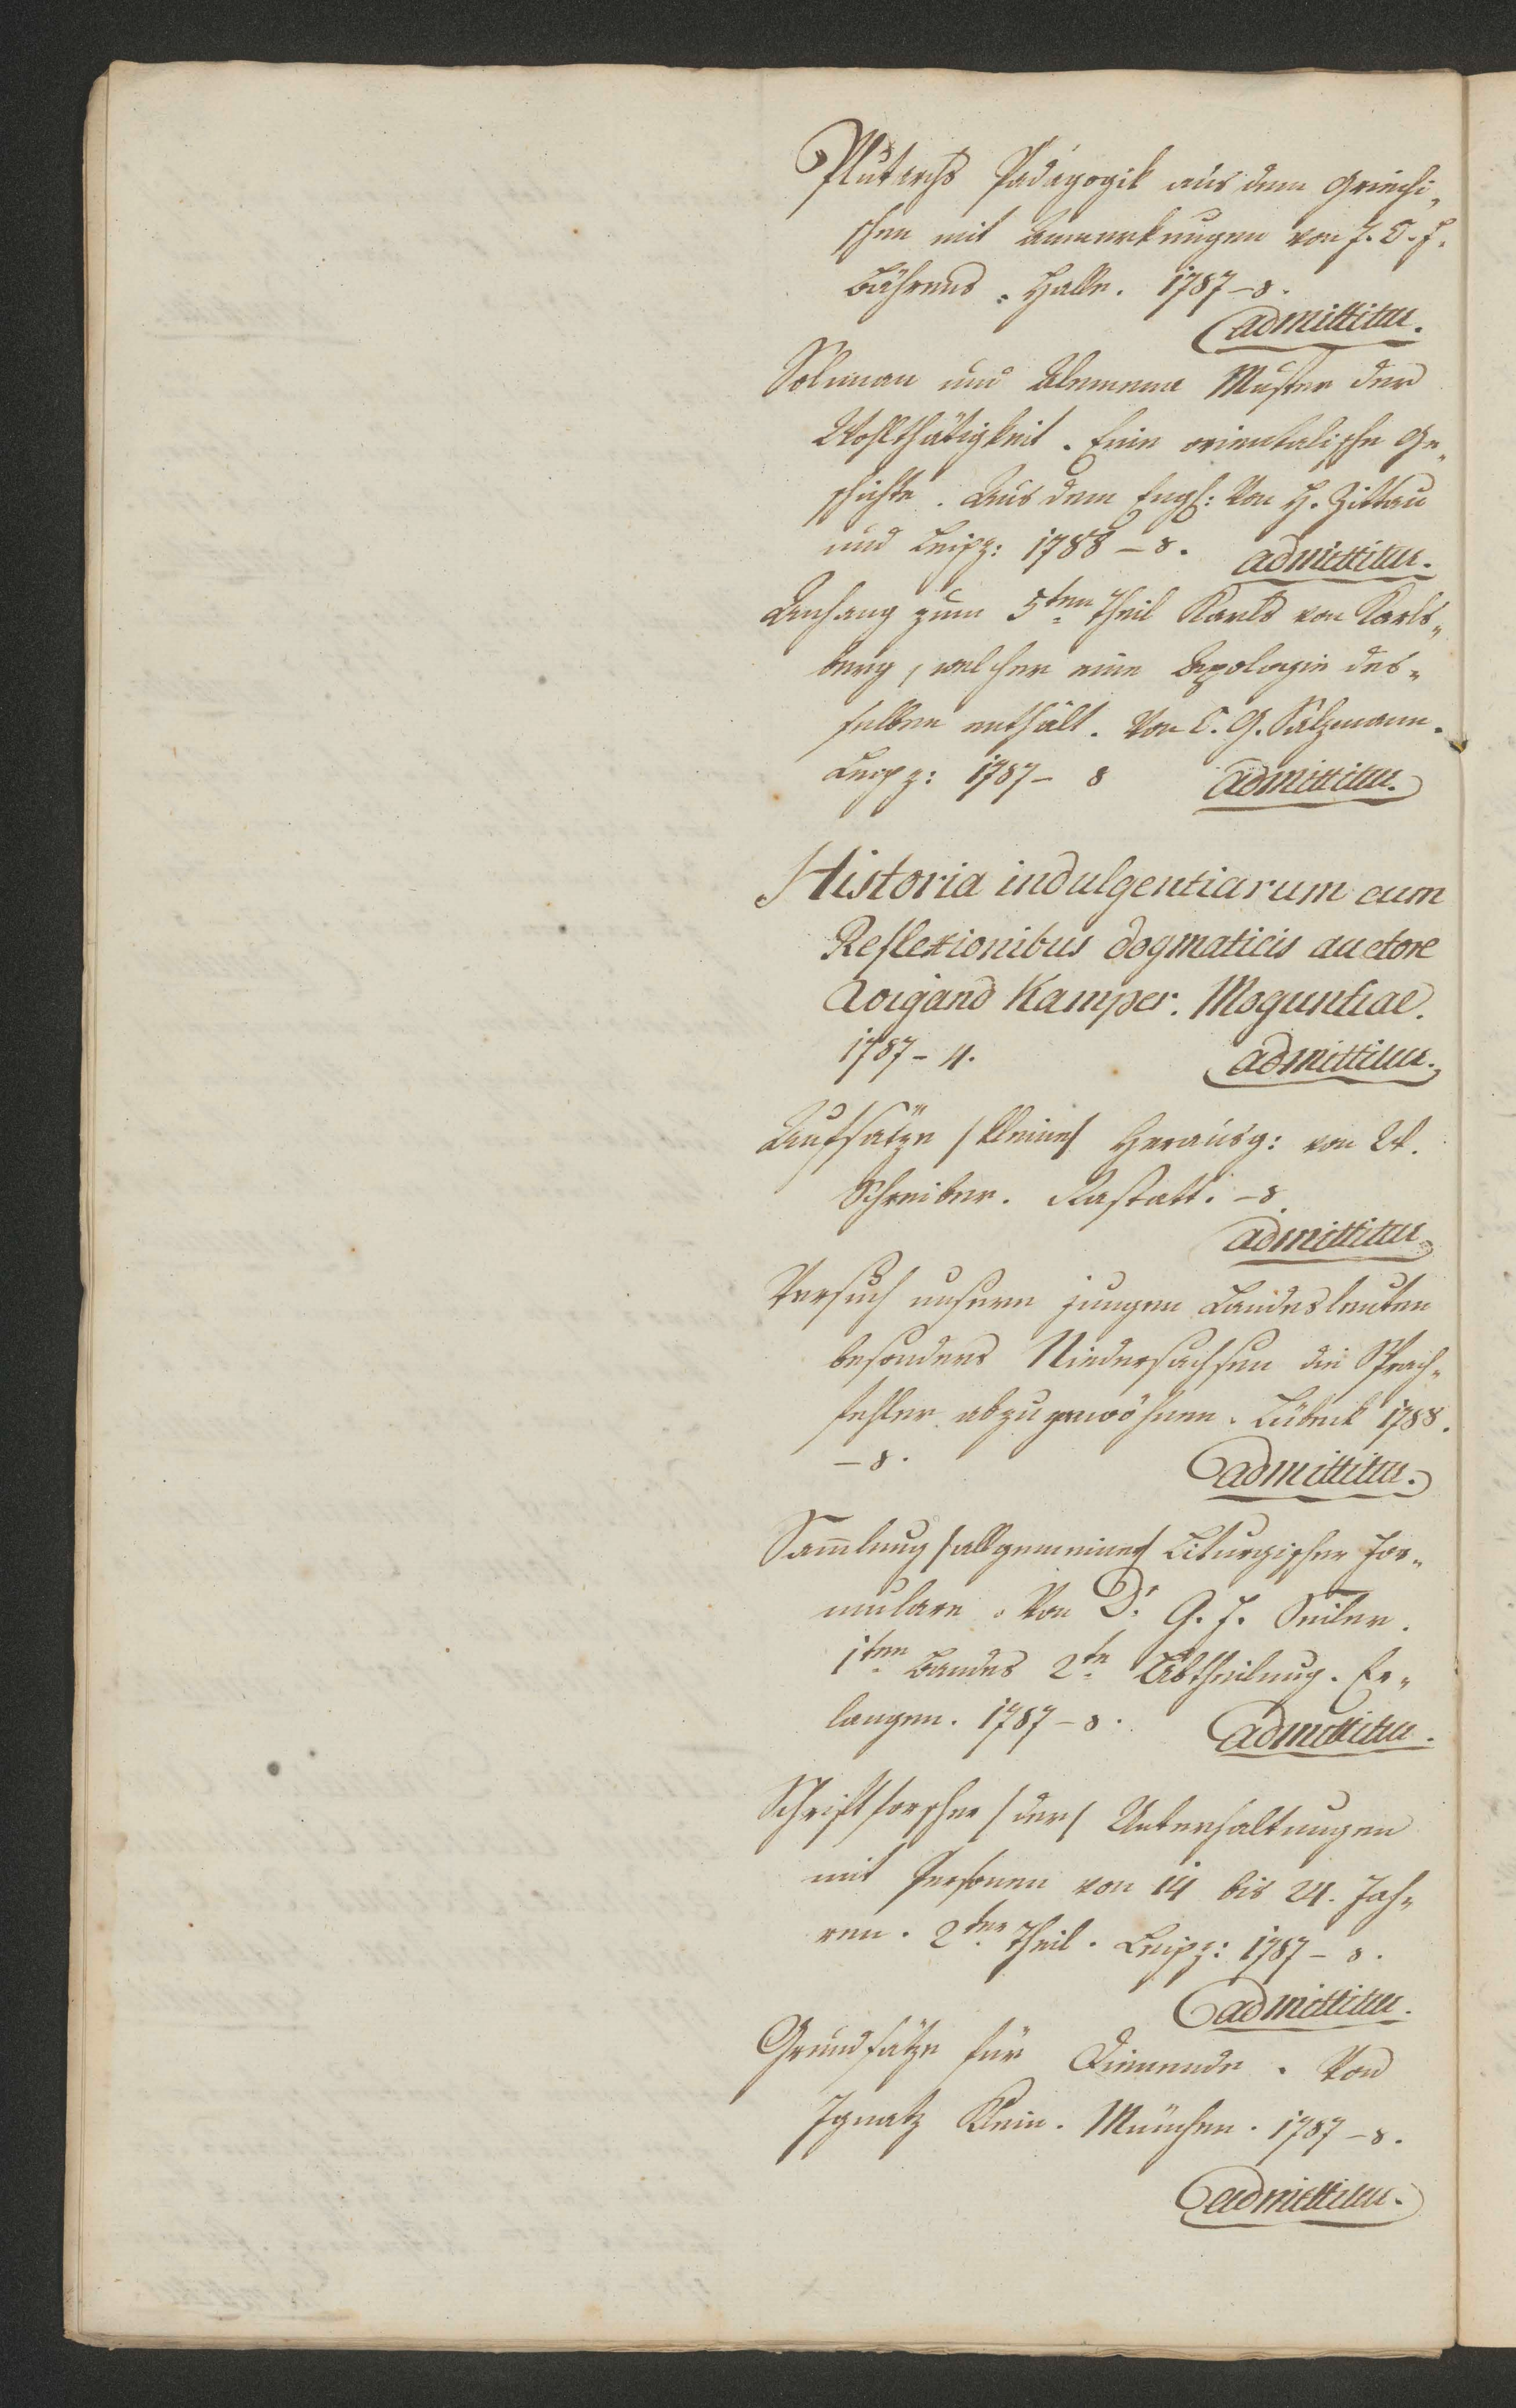 Plutarchs Pädagogik aus dem Griechi„
schen mit Anmerkungen von J. C. F.
Bährens. Halle. 1787 – 8.
admittitur.
Soliman und Almena Muster der
Wohlthätigkeit. Eine orientalische Ge„
schichte. Aus dem Engl: Von H. Zittau
und Leipz: 1788 – 8. admittitur.
Anhang zum 5ten Theil Karls von Karls„
berg, welcher eine Apologie des„
selben enthält. Von C. G. Salzmann.
Leipz: 1787 – 8 admittitur.
Historia indulgentiarum cum
Reflexionibus dogmaticis auctore
Wigand Kamper. Moguntiae.
1787 – 4. admittitur.
Aufsätze /kleine/ Herausg: von A.
Schreiber. Rastatt. – 8.
admittitur.
Versuch unsern jungen Landesleuten
besonders Niedersachsen die Sprach„
fehler abzugewöhnen. Lübeck 1788.
– 8. admittitur.
Sam̄lung /allgemeine/ Liturgischer For„
mulare. Von Dr. G. F. Seiler.
1ten Bandes 2te Abtheilung. Er„
langen. 1787 – 8. admittitur.
Schriftforscher /der/ Unterhaltungen
mit Personen von 14 bis 24. Jah„
ren. 2ter Theil. Leipz: 1787 – 8.
admittitur.
Grundsätze für Dienende. Von
Ignatz Klein. München. 1787 – 8.
admittitur.